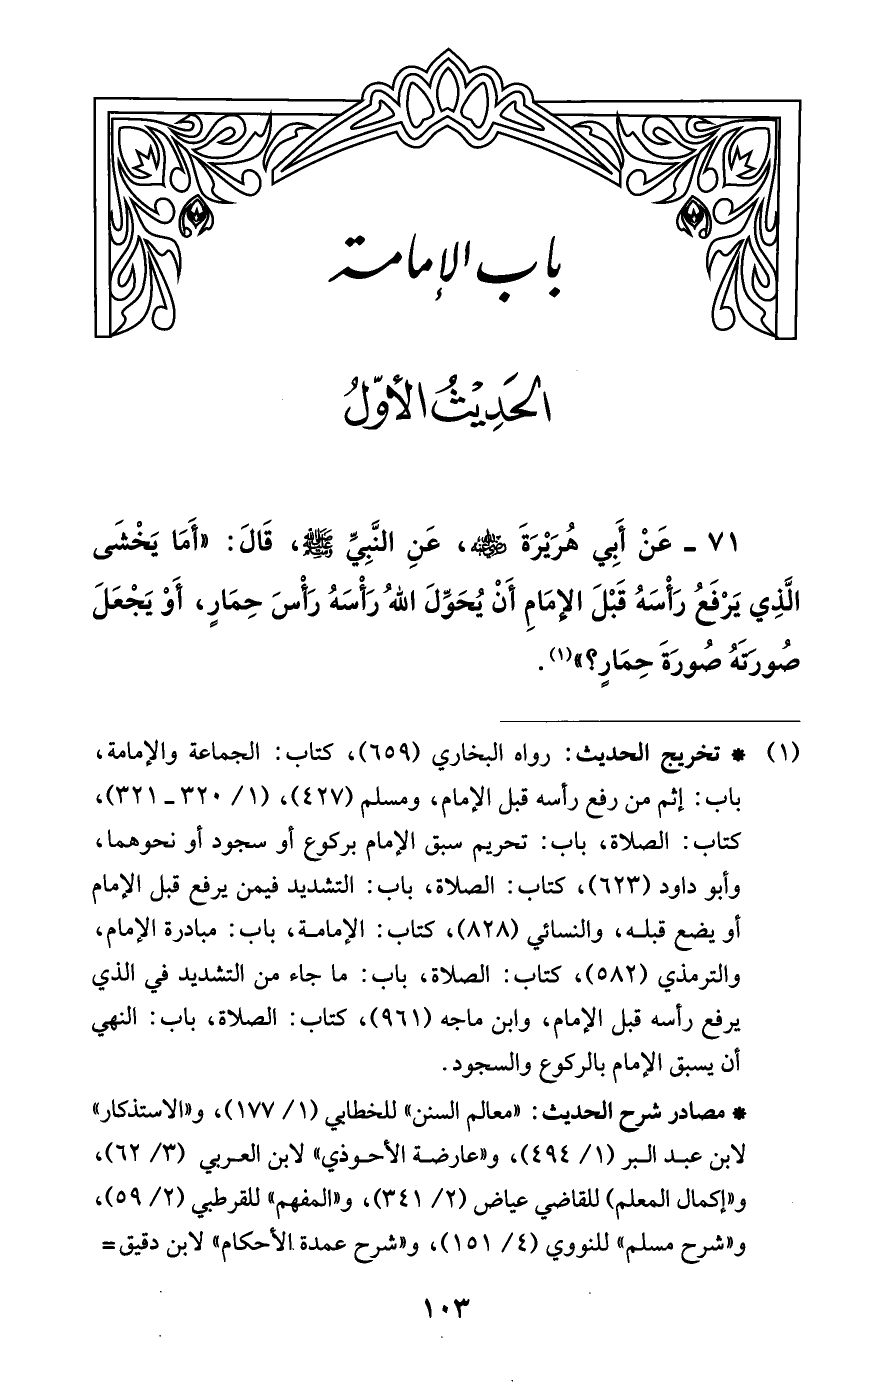 باب الإمامة
الحَدِيثُ الأَوَّلُ
٧١ - عَنْ أَبِي هُرَيْرَةَ رضي الله عنه، عَنِ النَّبِيِّ ﷺ، قَالَ: «أَمَا يَخْشَى
الَّذِي يَرْفَعُ رَأْسَهُ قَبْلَ الإِمَامِ أَنْ يُحَوِّلَ اللهُ رَأْسَهُ رَأْسَ حِمَارٍ، أَوْ يَجْعَلَ
صُورَتَهُ صُورَةَ حِمَارٍ؟»(١).
(١) * تخريج الحديث: رواه البخاري (٦٥٩)، كتاب: الجماعة والإمامة،
باب: إثم من رفع رأسه قبل الإمام، ومسلم (٤٢٧)، (١/ ٣٢٠ - ٣٢١)،
كتاب: الصلاة، باب: تحريم سبق الإمام بركوع أو سجود أو نحوهما،
وأبو داود (٦٢٣)، كتاب: الصلاة، باب: التشديد فيمن يرفع قبل الإمام
أو يضع قبله، والنسائي (٨٢٨)، كتاب: الإمامة، باب: مبادرة الإمام،
والترمذي (٥٨٢)، كتاب: الصلاة، باب: ما جاء من التشديد في الذي
يرفع رأسه قبل الإمام، وابن ماجه (٩٦١)، كتاب: الصلاة، باب: النهي
أن يسبق الإمام بالركوع والسجود.
* مصادر شرح الحديث: «معالم السنن» للخطابي (١/ ١٧٧)، و«الاستذكار»
لابن عبد البر (١/ ٤٩٤)، و«عارضة الأحوذي» لابن العربي (٣/ ٦٢)،
و«إكمال المعلم) للقاضي عياض (٢/ ٣٤١)، و«المفهم» للقرطبي (٢/ ٥٩)،
و«شرح مسلم» للنووي (٤/ ١٥١)، و«شرح عمدة الأحكام» لابن دقيق=
١٠٣